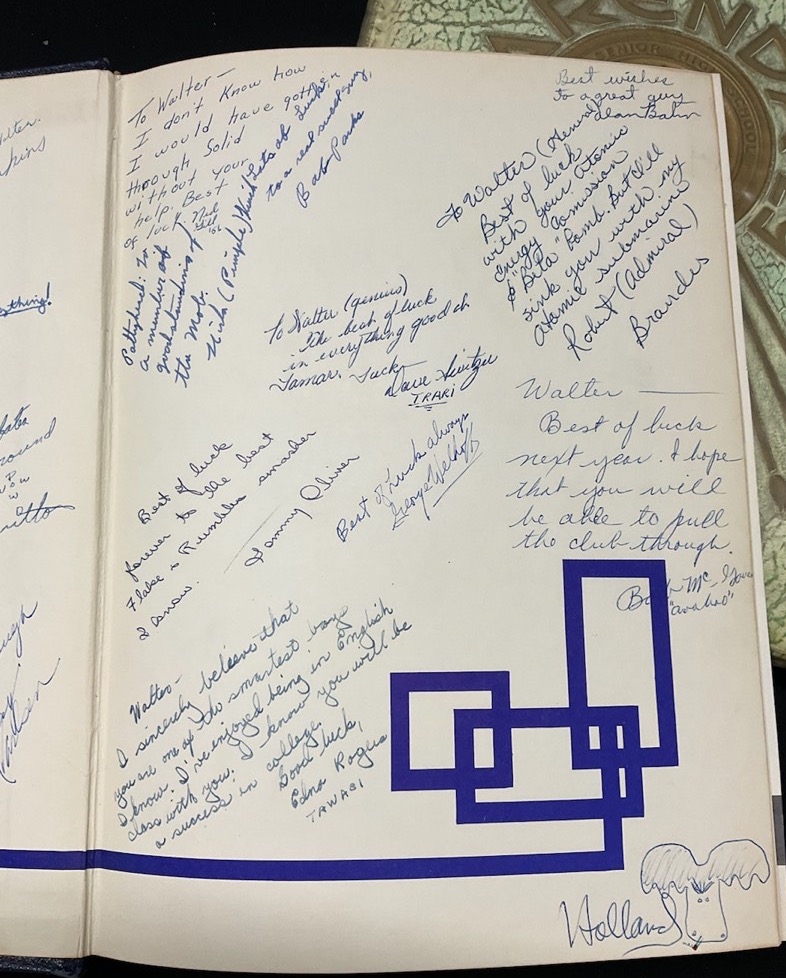 To Walter—
I don't know how
I would have gotten
through Solid
without your
help. Best
of luck. Neil
'56
Lots of Luck
to a real sweet guy,
Bab Parks
Best wishes
to a great guy
Jean Bahn
To Walter (General)
Best of luck
with your Atomic
Energy Commission
& "Beta" bomb. But I'll
sink you with my
atomic submarine
Robert (Admiral)
Brandes
a member of
good standing of
the Mob.
(Pimple)
To Walter (genius)
The best of luck
in everything good ol
Tamar. Luck
Dave Switzer
TRARI
Walter —
Best of luck
next year. I hope
that you will
be able to pull
the club through.
Barb Mc
"avahoo"
Best of luck
forever to the best
Flake & Rumbles smasher
I know.
Tommy Oliver
Best of Luck always
George Welhoff
Walter-
I sincerely believe that
you are one of the smartest boys
I know. I've enjoyed being in English
class with you. I know you will be
a success in college.
Good luck,
Edna Roglis
TAWASI
Holland
lter.
kins
sthing!
round
P
W
W
ditto
ugh
SENIOR HIGH SCHOOL